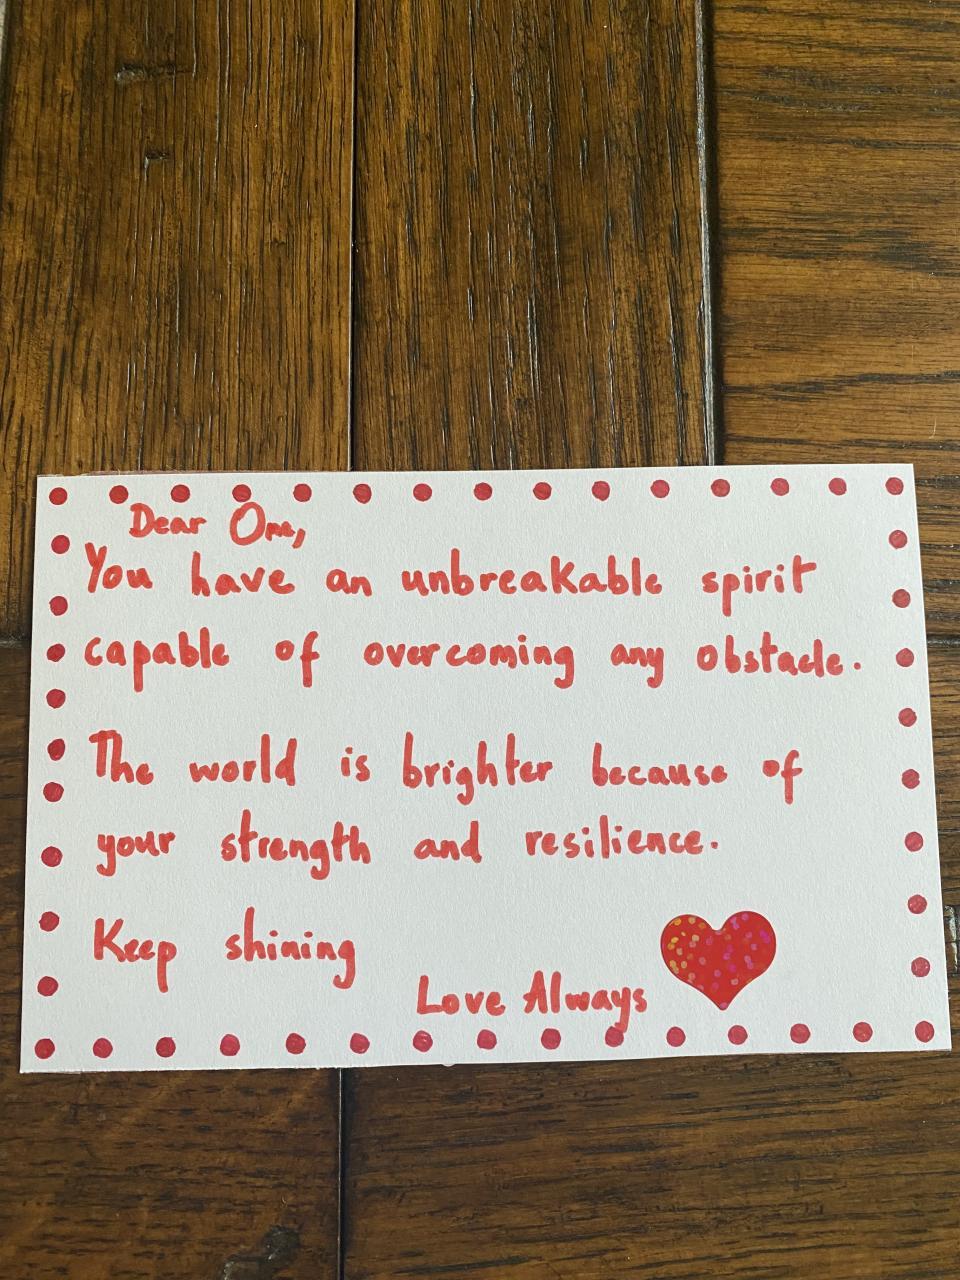 Dear One,
You have an unbreakable spirit
capable of overcoming any obstacle.
The world is brighter because of
your strength and resilience.
Keep shining
Love Always